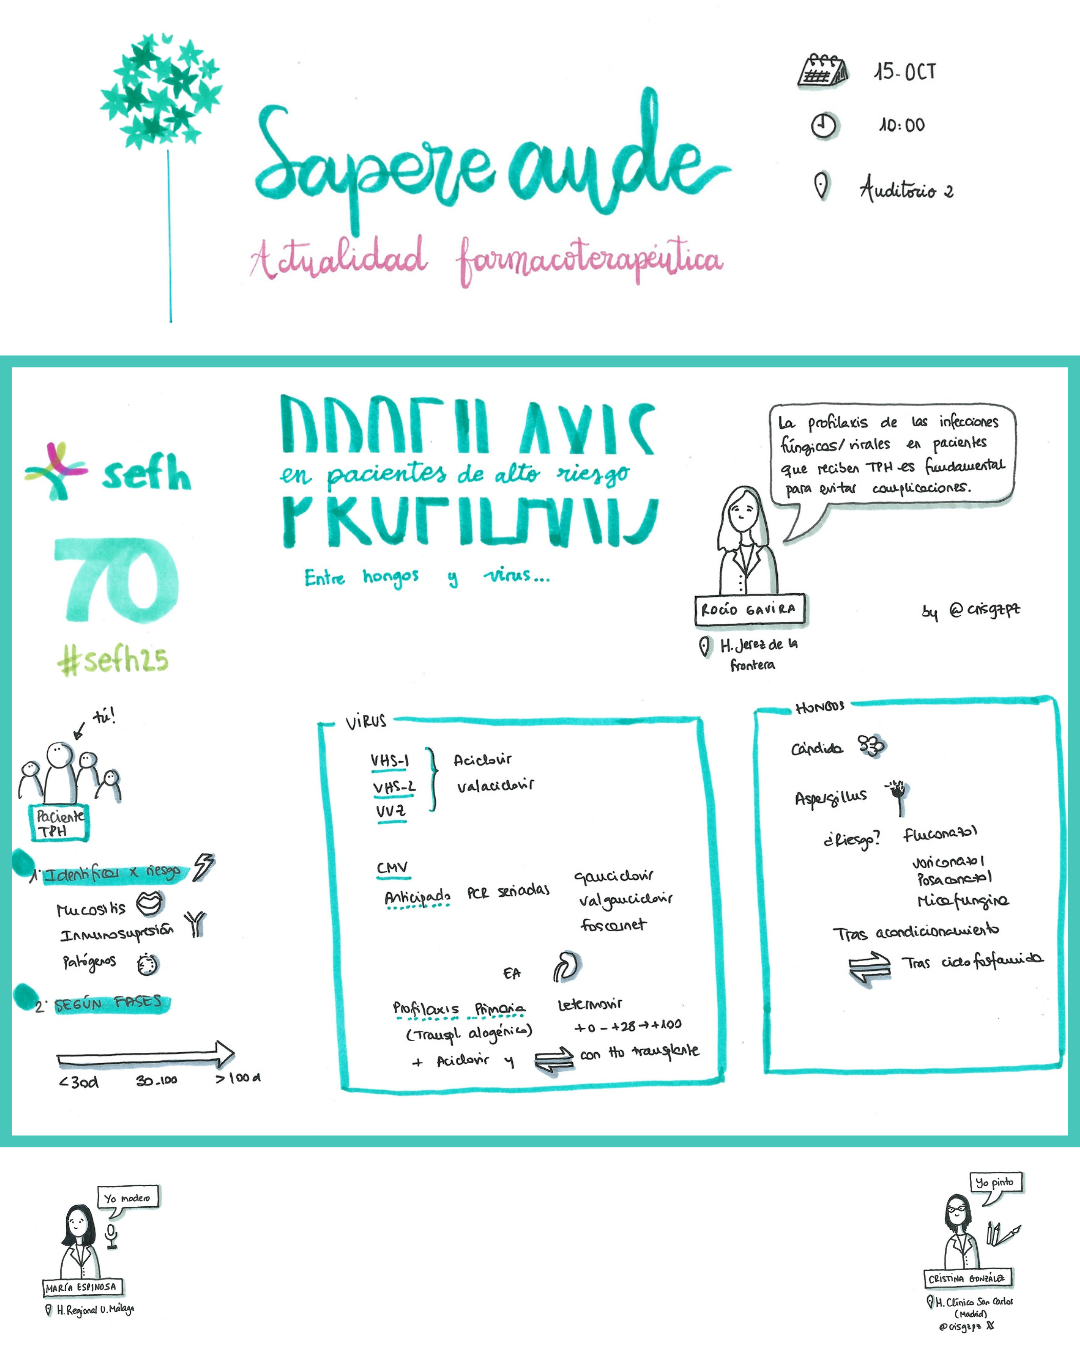 Sapere aude
Actualidad farmacoterapéutica
15-OCT
10:00
Auditorio 2
sefh
70
#sefh25
PROFILAXIS
en pacientes de alto riesgo
PROFILAXIS
Entre hongos y virus...
La profilaxis de las infecciones
fúngicas/virales en pacientes
que reciben TPH es fundamental
para evitar complicaciones.
ROCÍO GAVIRA
H. Jerez de la
frontera
by @crisgzpz
tú!
Paciente
TPH
1. Identificar x riesgo
Mucositis
Inmunosupresión
Patógenos
2. SEGÚN FASES
<30d 30-100 >100d
VIRUS
VHS-1
VHS-2
VVZ
Aciclovir
valaciclovir
CMV
Anticipado PCR seriadas
ganciclovir
valganciclovir
foscarnet
EA
Profilaxis Primaria
(Transpl. alogénico)
+ Aciclovir y
Letermovir
+0 - +28 → +100
con tto trasplante
HONGOS
Cándida
Aspergillus
¿Riesgo? Fluconazol
Voriconazol
Posaconazol
Micafungina
Tras acondicionamiento
Tras ciclofosfamida
Yo modero
MARÍA ESPINOSA
H. Regional U. Málaga
Yo pinto
CRISTINA GONZÁLEZ
H. Clínico San Carlos
(Madrid)
@crisgzpz X